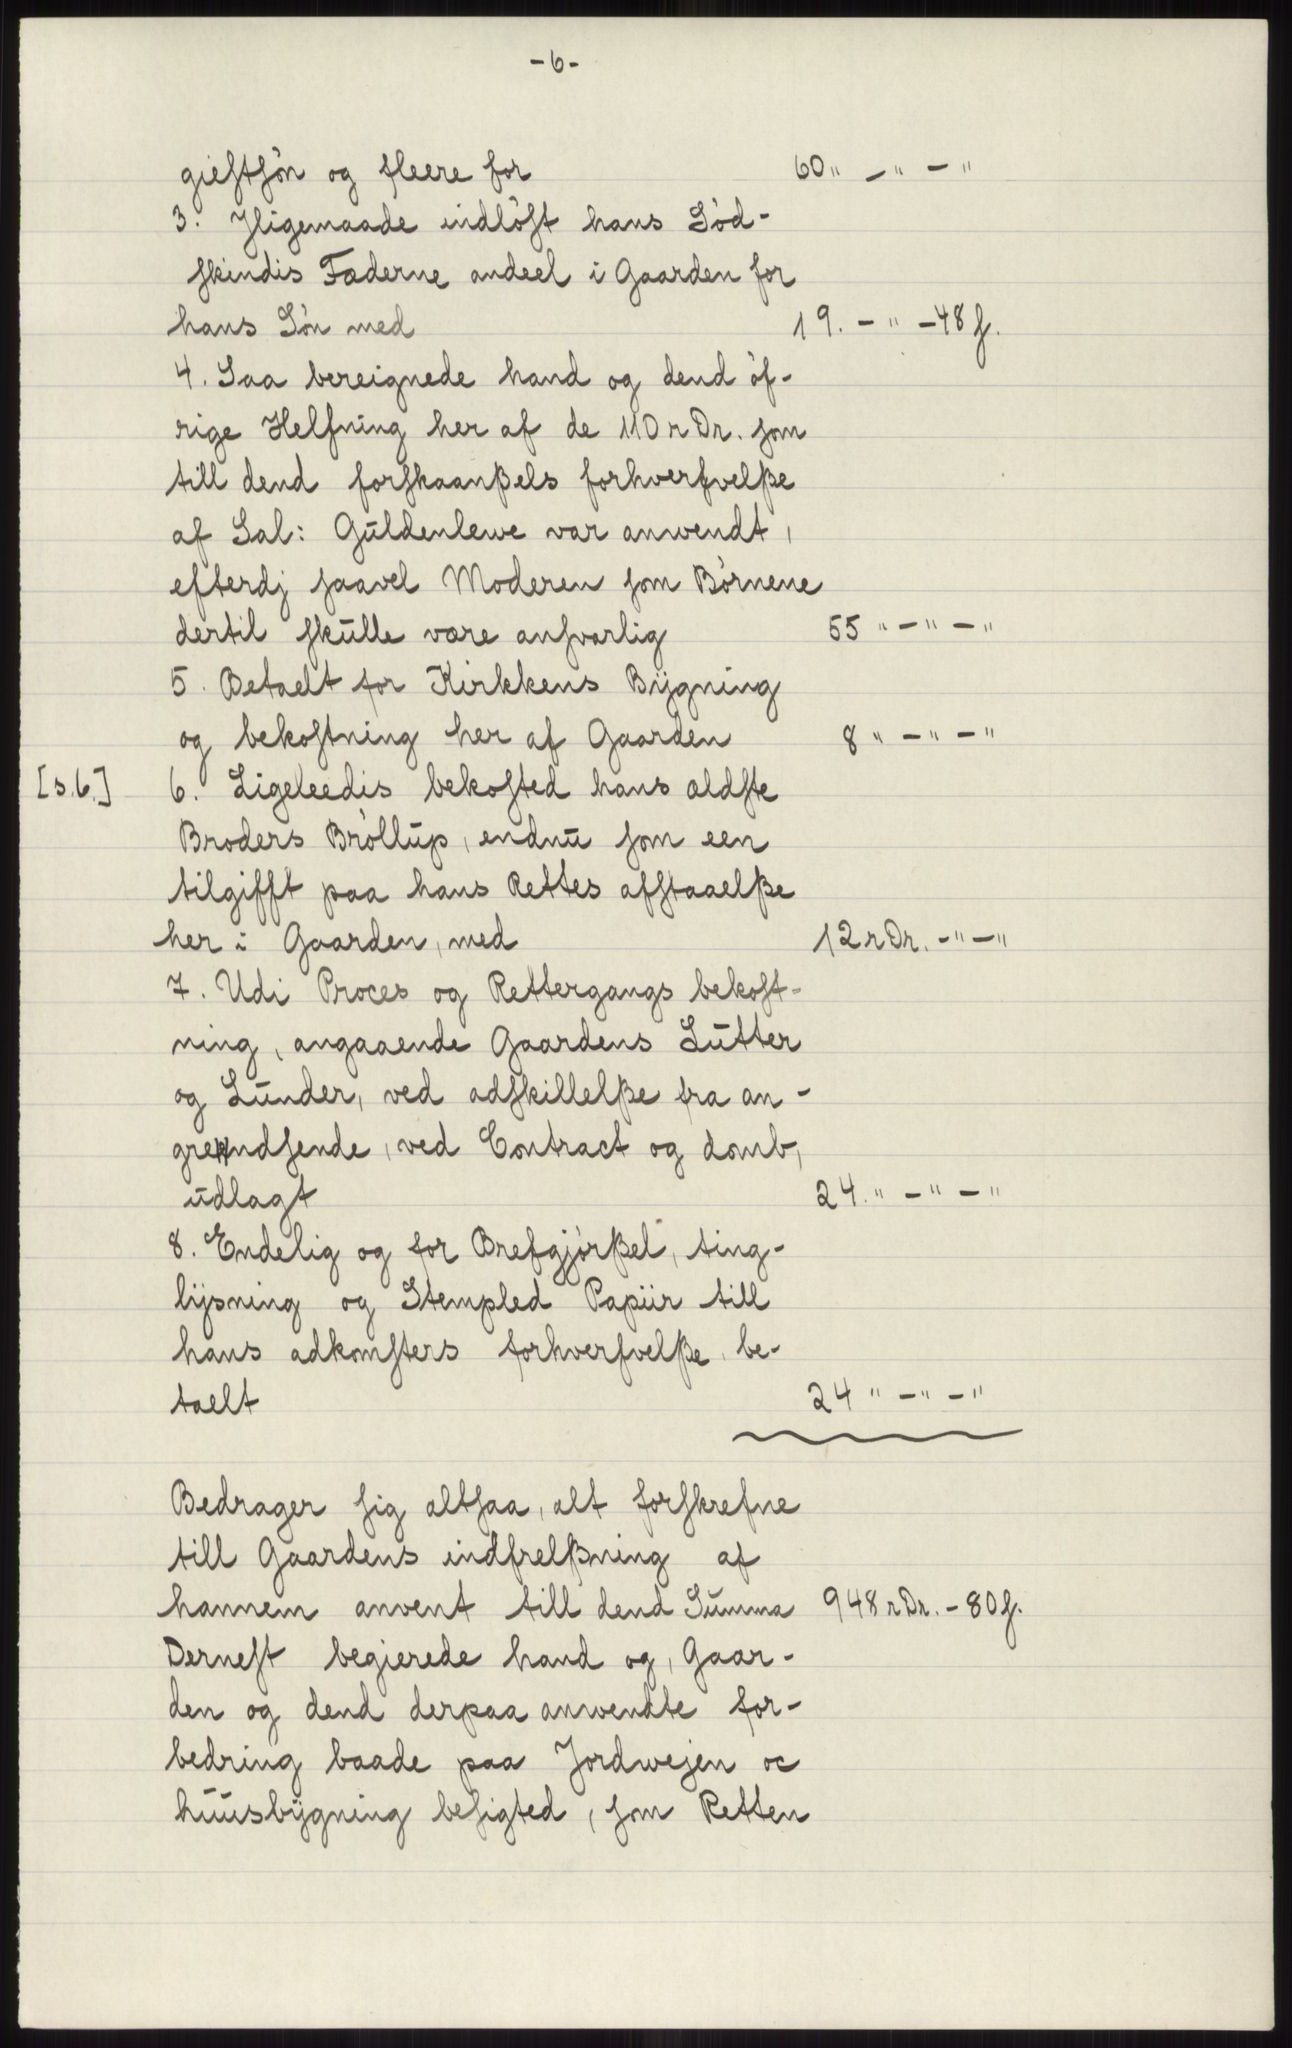 -6-
gieftsön og fleere for 60 " - " - "
3. Jligemaade indlöst hans Söd-
skindis Fæderne andeel i Gaarden for
hans Sön med 19. - " -48 s.
4. Saa bereignede hand og dend öf-
rige Helfning her af de 110 rDr. som
till dend forskaanßels forhverfvelße
af Sal: Gūldenlewe var anwendt,
efterdj saavel Moderen som Börnene
dertil skūlle være ansvarlig 55 " - " - "
5. Betaelt for Kirkkens Bÿgning
og bekostning her af Gaarden 8 " - " - "
[s.6.] 6. Ligeleedis bekosted hans ældste
Broders Bröllūp, endnū som een
tilgifft paa hans Rettes afstaaelße
her i Gaarden, med 12 rDr. - " - "
7. Udi Proces og Rettergangs bekost-
ning, angaaende Gaardens Lūtter
og Lūnder, ved adskillelße fra an-
grendsende, ved Contract og domb,
ūdlagt 24. " - " - "
8. Endelig og for Brefgjörßel, ting-
lÿsning og Stempled Papiir till
hans adkomsters forhverfvelße, be-
taelt 24 " - " - "
Bedrager sig altsaa, alt forskrefne
till Gaardens indfrelßning af
hannem anvent till dend Sūmma 948 rDr. - 80 s.
Dernest begierede hand og, Gaar-
den og dend derpaa anwendte for-
bedring baade paa Jordwejen oc
hūūsbÿgning besigted, som Retten